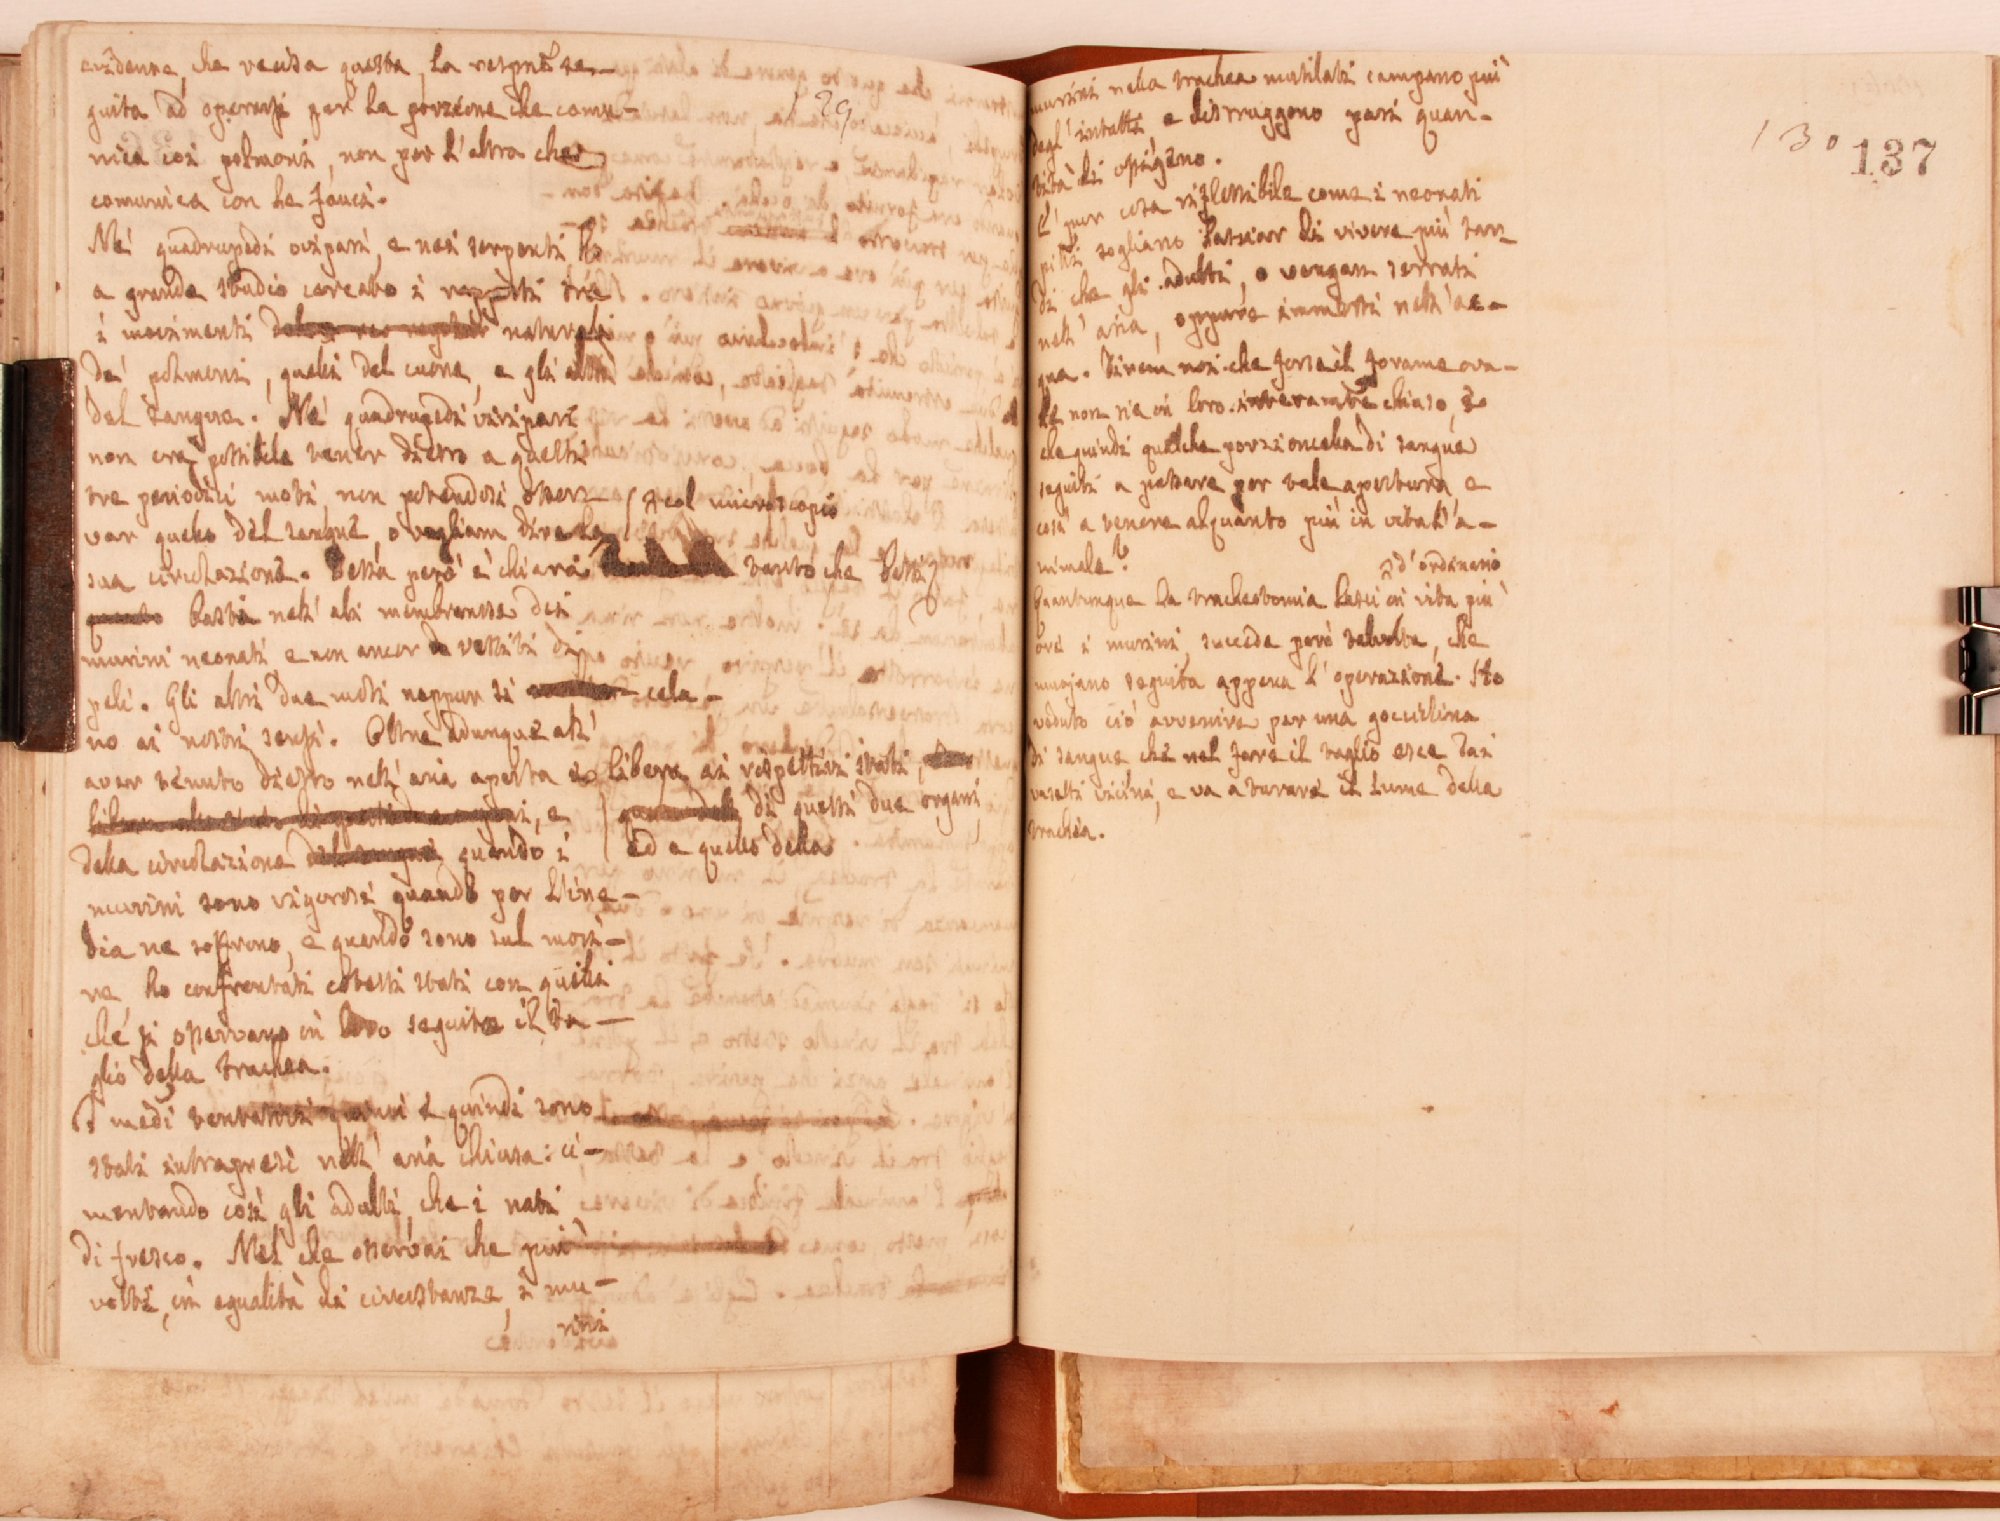 evidenza, che recisa questa, la respiraz. se-
guita ad operarsi per la porzione che comu-
nica coi polmoni, non per l'altra che
comunica con le fauci.
129
Ne' quadrupedi ovipari, e nei serpenti ho
a grande studio cercato i rapporti tra
i movimenti naturali
de' polmoni, quelli del cuore, e gli altri
del sangue. Ne' quadrupedi vivipari
non era possibile tener dietro a questi
tre periodici moti, non potendosi osser-
var quello del sangue, o vogliam dire la
col microscopio
sua circolazione. Questa però è chiara tanto che basti
nell' ali membranose dei
murini neonati e non ancor vestiti di
peli. Gli altri due moti neppur si cela-
no ai nostri sensi. Oltre adunque all'
aver tenuto dietro nell' aria aperta e libera ai rispettivi stati,
di questi due organi, e
ed a quello della
della circolazione quando i
murini sono vigorosi quando per l'ine-
dia ne soffrono, e quando sono sul mori-
re, ho confrontati cotesti stati con quelli
che si osservano in loro seguito il ta-
glio della trachea.
I medi tentativi quindi sono
stati intrapresi nell' aria chiusa: ci-
mentando così gli adulti, che i nati
di fresco. Nel che osservai che più
volte, in egualità di circostanze, i mu-
rini
130
137
murini nella trachea mutilati campano più
degl' intatti, e distruggono pari quan-
tità di ossigeno.
E' pur cosa riflessibile come i neonati
pitti sogliano lasciar di vivere più tar-
di che gli adulti, o vengan serrati
nell' aria, oppure immersi nell' ac-
qua. Direm noi che forse il forame ova-
le non sia in loro interamte chiuso, e
che quindi qualche porzioncella di sangue
seguiti a passare per tale apertura, e
così a tenere alquanto più in vita l'a-
nimale?
Quantunque la tracheotomia lasci d'ordinario in vita più
ore i murini, succede però talvolta, che
muojano seguita appena l'operazione. Ho
veduto ciò avvenire per una gocciolina
di sangue che nel fare il taglio esce dai
vaselli vicini, e va a turare il lume della
trachea.